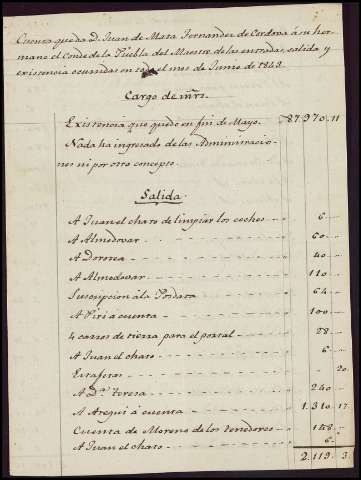 Cuenta que da D. Juan de Mata Fernandez de Cordova á su her-
mano el Conde de la Puebla del Maestre, de las entradas, salida y
existencia ocurridas en todo el mes de Junio de 1848.
Cargo de mrs.
Existencia que quedo en fin de Mayo. 87.970.11
Nada ha ingresado de las Administracio-
nes ni por otro concepto.
Salida
A Juan el chato de limpiar los coches 6
A Almodovar 60
A Dorotea 40
A Almodovar 110
Suscripcion á la Posdata 64
A Piri á cuenta 100
4 carros de tierra para el portal 28
A Juan el chato 6
Estafetas 20
A D.ª Teresa 240
A Aregui á cuenta 1.310 17
Cuenta de Moreno de los tenedores 148
A Juan el chato 6
2.119 3